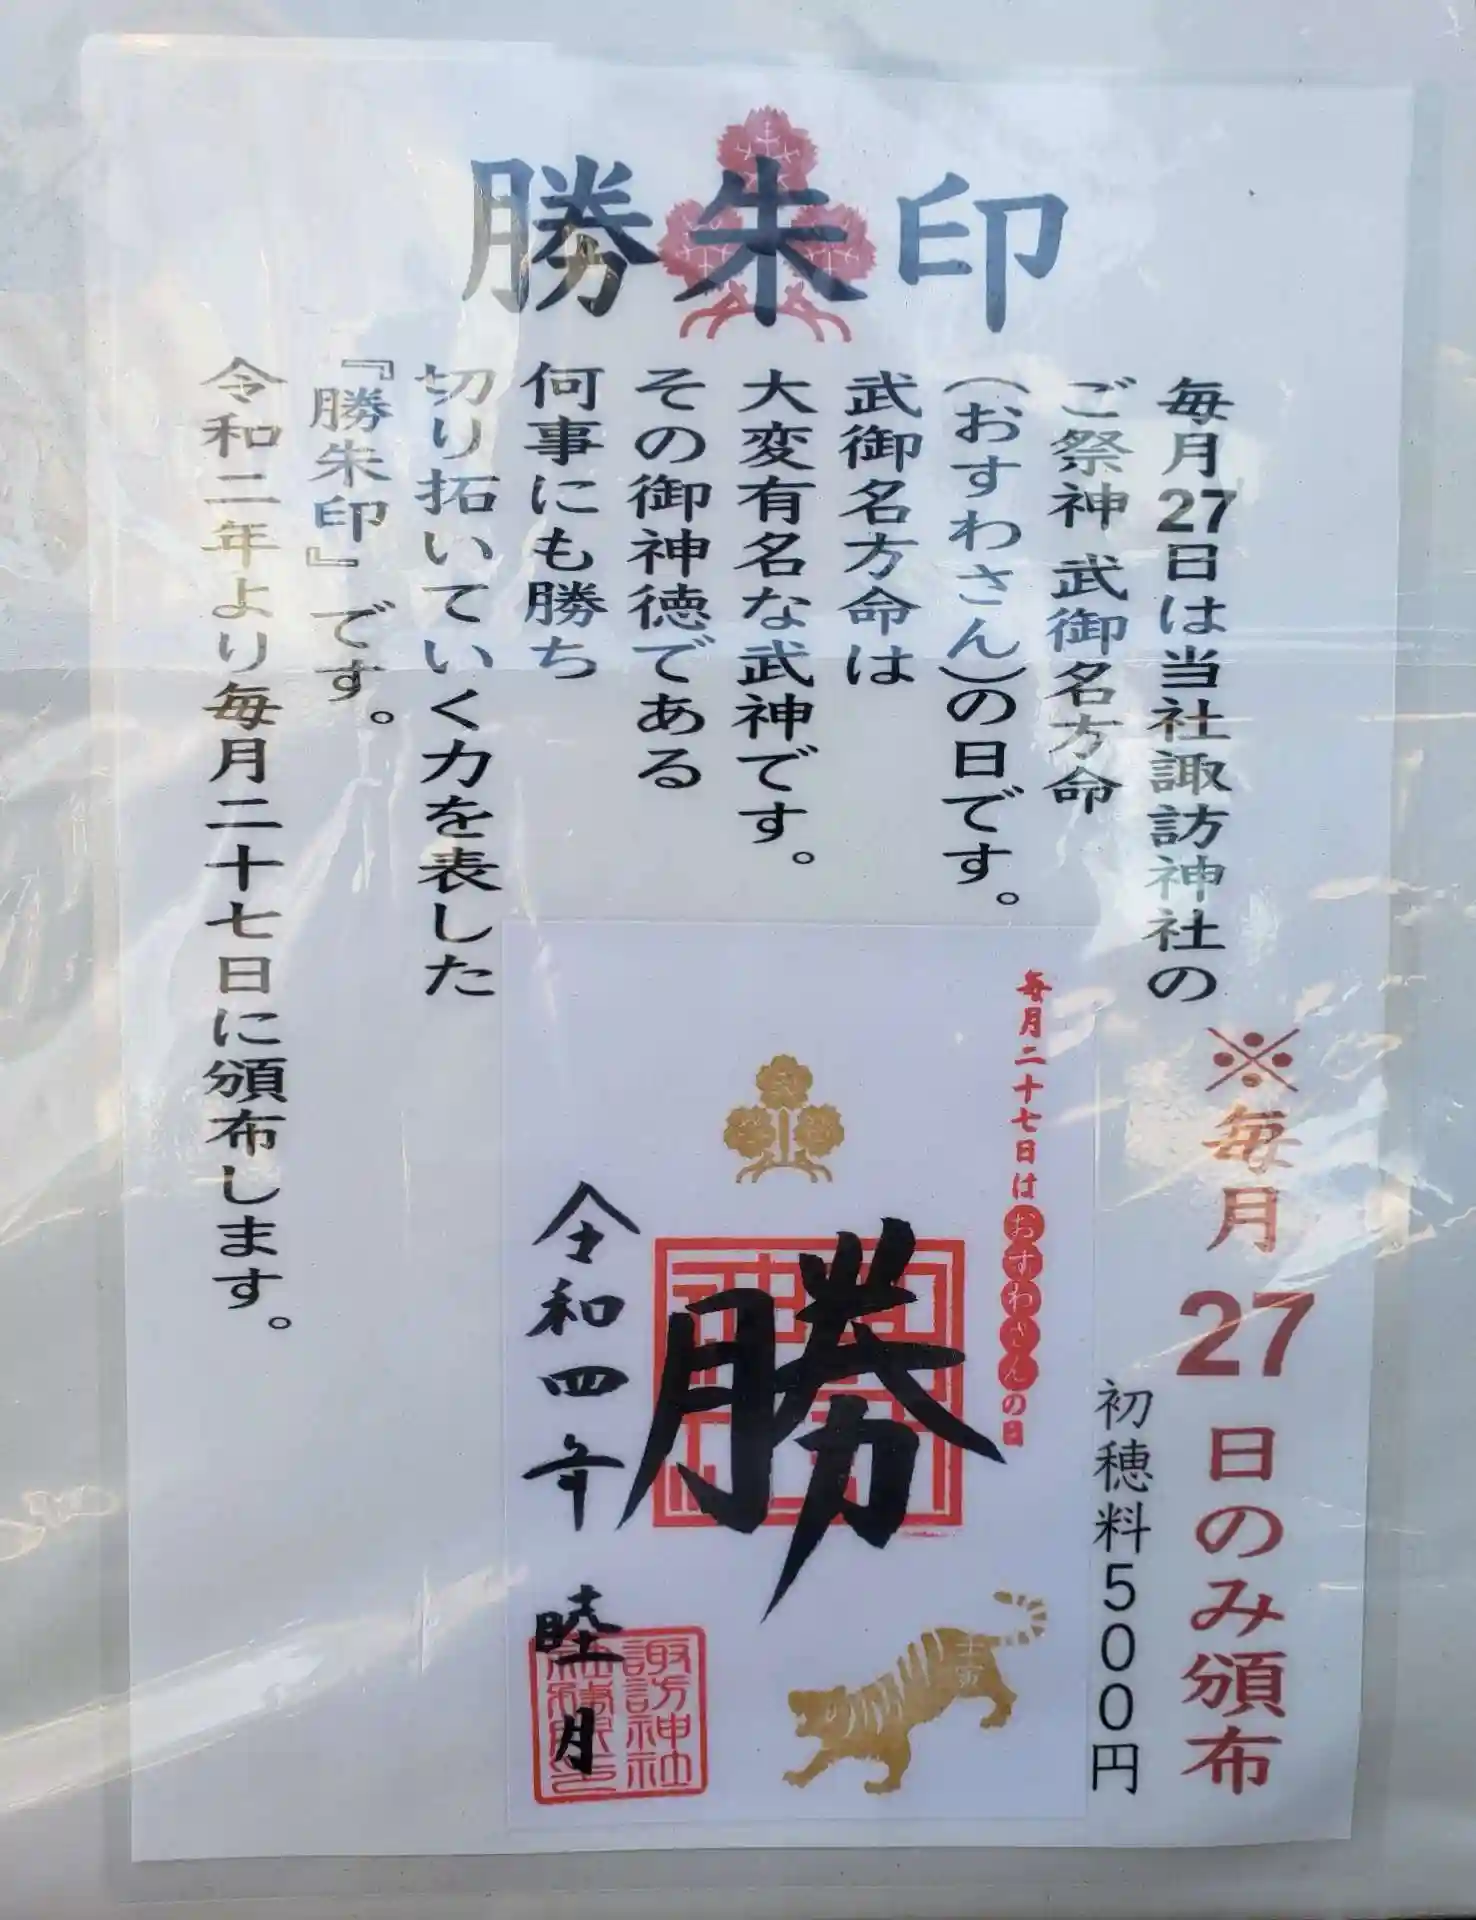 勝朱印
毎月27日は当社諏訪神社の
ご祭神 武御名方命
(おすわさん)の日です。
武御名方命は
大変有名な武神です。
その御神徳である
何事にも勝ち
切り拓いていく力を表した
『勝朱印』です。
令和二年より毎月二十七日に頒布します。
※毎月27日のみ頒布
初穂料500円
毎月二十七日はおすわさんの日
勝
令和四年 睦月
諏訪神社